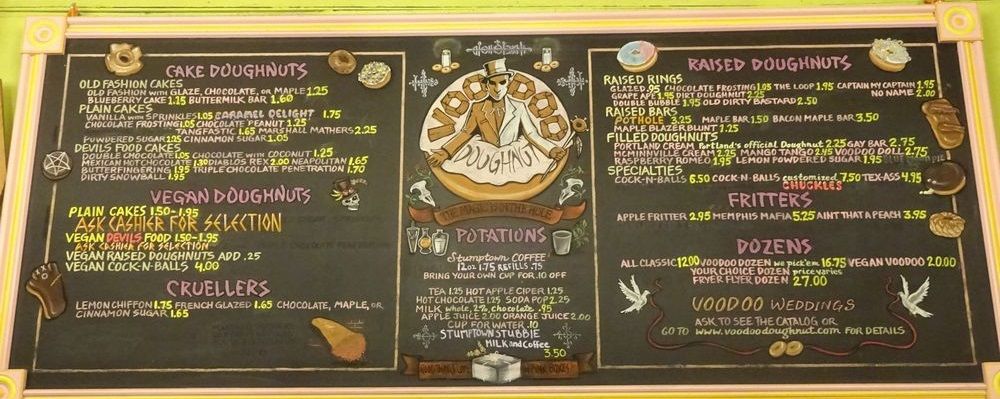 CAKE DOUGHNUTS
OLD FASHION CAKES
OLD FASHION with GLAZE, CHOCOLATE, or MAPLE 1.25
BLUEBERRY CAKE 1.25 BUTTERMILK BAR 1.60
PLAIN CAKES
VANILLA with SPRINKLES 1.05 CARAMEL DELIGHT 1.75
CHOCOLATE FROSTING 1.05 CHOCOLATE PEANUT 1.25
TANGFASTIC 1.65 MARSHALL MATHERS 2.25
POWDERED SUGAR 1.25 CINNAMON SUGAR 1.05
DEVILS FOOD CAKES
DOUBLE CHOCOLATE 1.05 CHOCOLATE with COCONUT 1.25
MEXICAN HOT CHOCOLATE 1.30 DIABLOS REX 2.00 NEAPOLITAN 1.65
BUTTERFINGERING 1.95 TRIPLE CHOCOLATE PENETRATION 1.70
DIRTY SNOWBALL 1.95
VEGAN DOUGHNUTS
PLAIN CAKES 1.50-1.95
ASK CASHIER FOR SELECTION
VEGAN DEVILS FOOD 1.50-1.95
ASK CASHIER FOR SELECTION
VEGAN RAISED DOUGHNUTS ADD .25
VEGAN COCK-N-BALLS 4.00
CRUELLERS
LEMON CHIFFON 1.75 FRENCH GLAZED 1.65 CHOCOLATE, MAPLE, OR
CINNAMON SUGAR 1.65
VOODOO
DOUGHNUT
THE MAGIC IS IN THE HOLE
POTATIONS
Stumptown COFFEE
12oz 1.75 REFILLS .75
BRING YOUR OWN CUP FOR .10 OFF
TEA 1.25 HOT APPLE CIDER 1.25
HOT CHOCOLATE 1.25 SODA POP 2.25
MILK whole, 2%, chocolate .95
APPLE JUICE 2.00 ORANGE JUICE 2.00
CUP FOR WATER .10
STUMPTOWN STUBBIE
MILK and COFFEE
3.50
GOOD THINGS COME IN PINK BOXES
RAISED DOUGHNUTS
RAISED RINGS
GLAZED .95 CHOCOLATE FROSTING 1.05 THE LOOP 1.95 CAPTAIN MY CAPTAIN 1.95
GRAPE APE 1.95 DIRT DOUGHNUT 2.25 NO NAME 2.00
DOUBLE BUBBLE 1.95 OLD DIRTY BASTARD 2.50
RAISED BARS
POTHOLE 3.25 MAPLE BAR 1.50 BACON MAPLE BAR 3.50
MAPLE BLAZER BLUNT 1.25
FILLED DOUGHNUTS
PORTLAND CREAM Portland's official Doughnut 2.25 GAY BAR 2.75
MCMINNVILLE CREAM 2.25 MANGO TANGO 2.95 VOODOO DOLL 2.75
RASPBERRY ROMEO 1.95 LEMON POWDERED SUGAR 1.95
SPECIALTIES
COCK-N-BALLS 6.50 COCK-N-BALLS customized 7.50 TEX-ASS 4.95
CHUCKLES
FRITTERS
APPLE FRITTER 2.95 MEMPHIS MAFIA 5.25 AINT THAT A PEACH 3.95
DOZENS
ALL CLASSIC 12.00 VOODOO DOZEN we pick'em 16.75 VEGAN VOODOO 20.00
YOUR CHOICE DOZEN price varies
FRYER FLYER DOZEN 27.00
VOODOO WEDDINGS
ASK TO SEE THE CATALOG OR
GO TO www.voodoodoughnut.com FOR DETAILS